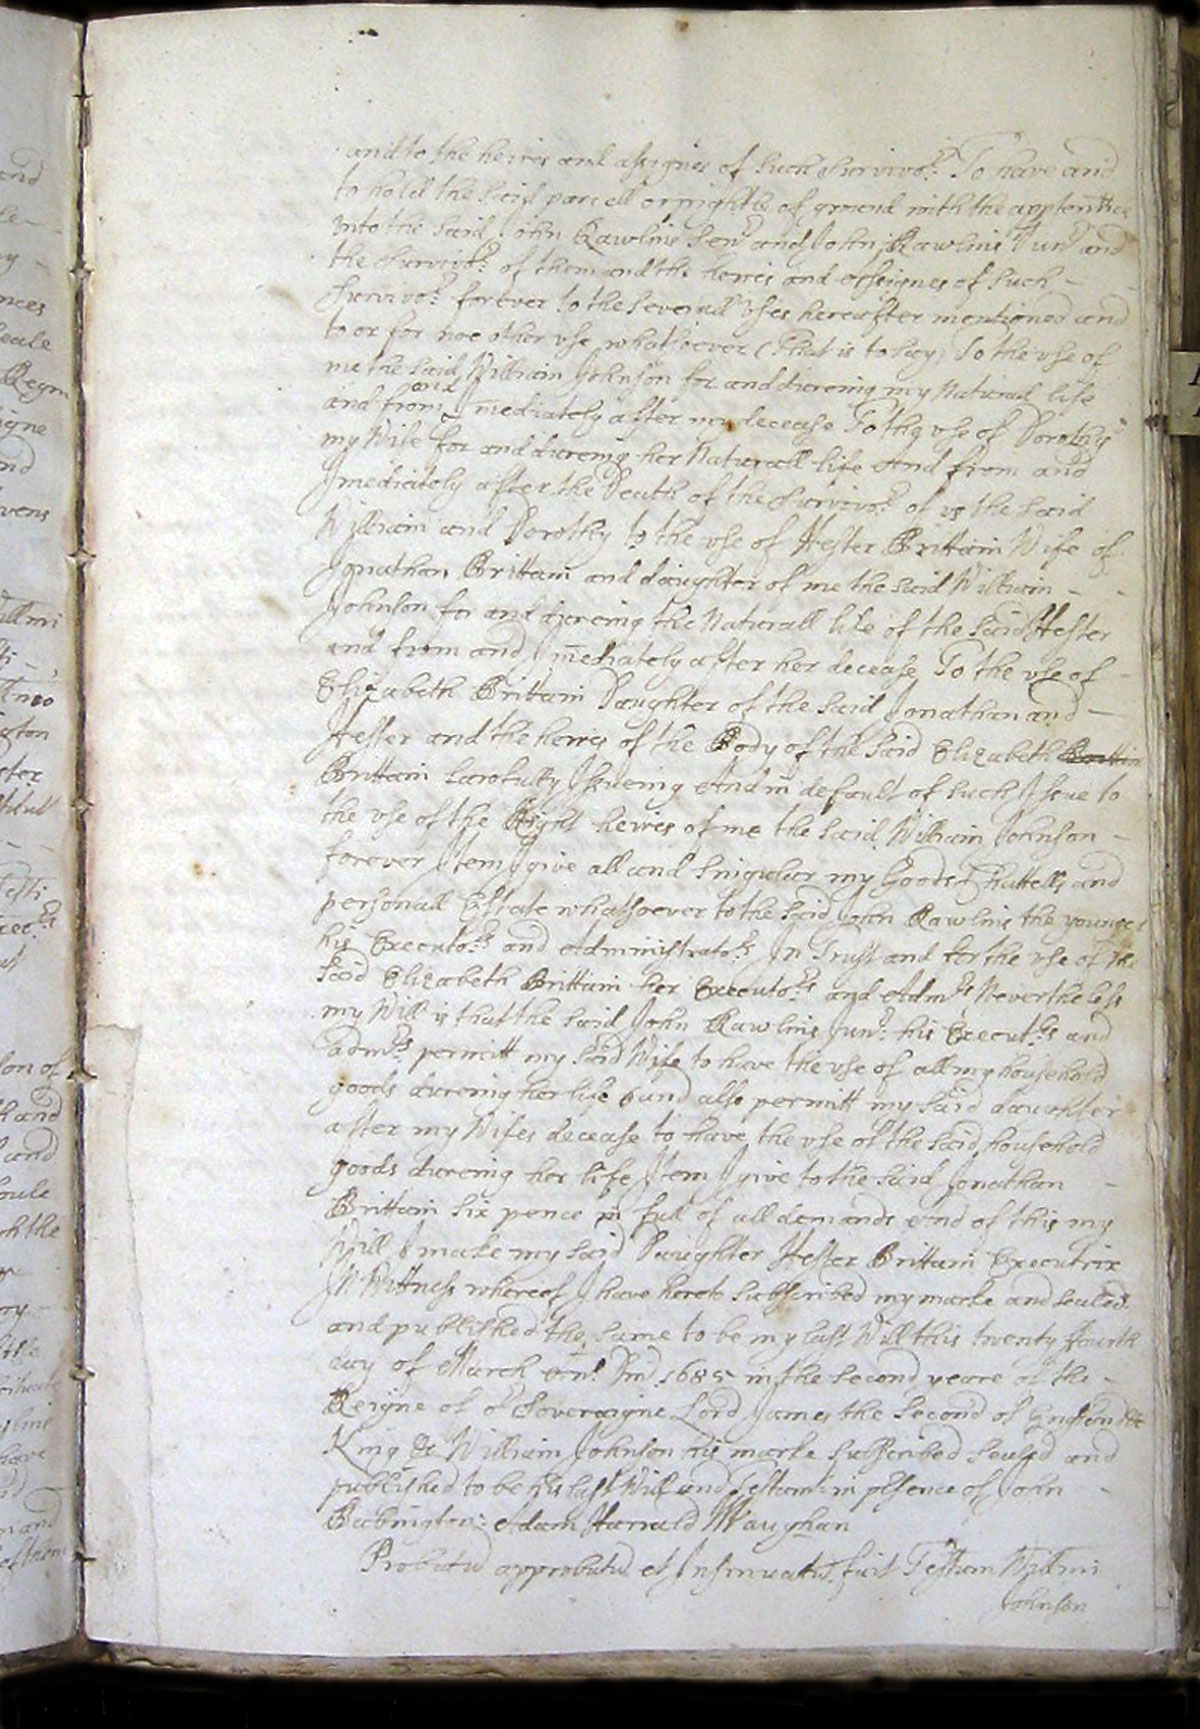 and to the heires and assignes of such survivo:r To have and
to hold the said parcell or pightle of ground with the
unto the said John Rawlins Sen:r and John Rawlins Jun:r and
the survivo:r of them and the heires and assignes of such –
survivo:r forever to the severall uses hereafter mentioned and
to or for noe other use whatsoever (That is to say) To the use of
me the said William Johnson for and dureing my Naturall life
and from and Imediately after my decease To the use of Dorothy
my Wife for and dureing her Naturall life And from and
Imediately after the Death of the survivo:r of us the said
William and Dorothy to the use of Hester Brittain Wife of
Jonathan Brittain and daughter of me the said William –
Johnson for and dureing the Naturall life of the said Hester
and from and Imediately after her decease To the use of –
Elizabeth Brittain Daughter of the said Jonathan and –
Hester and the heires of the Body of the said Elizabeth
Brittain lawfully Issueing And in default of such Issue to
the use of the Right heires of me the said William Johnson –
forever Item I give all and singular my Goods Chattells and
personall Estate whatsoever to the said John Rawlins the younger
his Executo:rs and Administrato:rs In Trust and for the use of the
said Elizabeth Brittain her Executo:rs and Adm:rs Neverthelesse
my Will is that the said John Rawlins Jun:r his Execut:rs and
adm:rs permitt my said Wife to have the use of all my household
goods dureing her life and also permitt my said daughter
after my Wifes decease to have the use of the said household
goods dureing her life Item I give to the said Jonathan –
Brittain six pence in full of all demands And of this my
Will I make my said Daughter Hester Brittain Executrix
In Wittness whereof I have hereto subscribed my marke and sealed
and published the same to be my last Will this twenty fourth
day of March An:o Dm:i 1685 in the second yeare of the –
Reigne of o:r Soveraigne Lord James the Second of England &c
King &c William Johnson his marke subscribed sealed and
published to be his last Will and Testam:t in psence of John –
Babington: Adam Harrald W Vaughan
Probatu approbatu et Insinuatu fuit Testum Willmi
Johnson